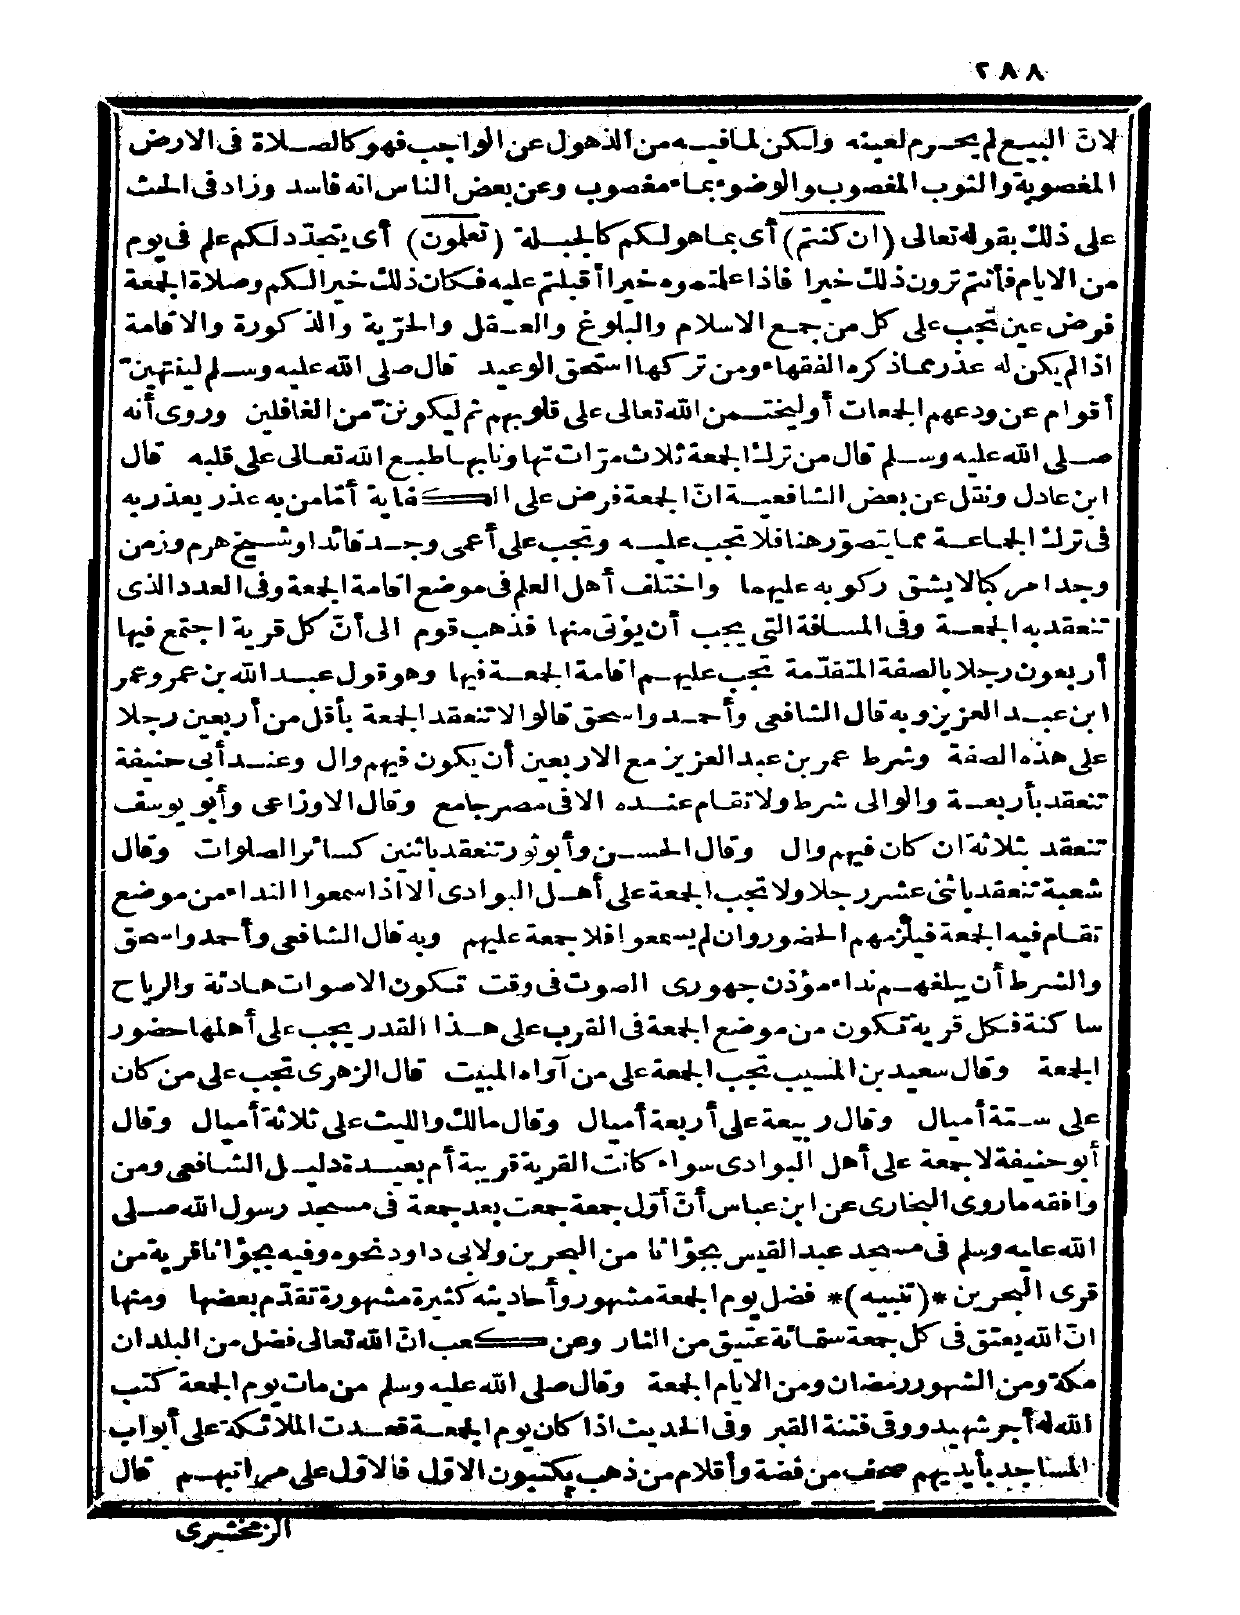 ٢٨٨
لانّ البيع لم يحرم لعينه ولكن لما فيه من الذهول عن الواجب فهو كالصلاة فى الارض
المغصوبة والثوب المغصوب والوضوء بماء مغصوب وعن بعض الناس انه فاسد وزاد فى الحث
على ذلك بقوله تعالى (ان كنتم) أى بما هو لكم كالجبلة (تعلمون) أى يتجدّد لكم علم فى يوم
من الايام فأنتم ترون ذلك خيرا فاذا علمتموه خيرا أقبلتم عليه فكان ذلك خيرا لكم وصلاة الجمعة
فرض عين تجب على كل من جمع الاسلام والبلوغ والعقل والحرّية والذكورة والاقامة
اذا لم يكن له عذر مما ذكره الفقهاء ومن تركها استحق الوعيد قال صلى الله عليه وسلم لينتهينّ
أقوام عن ودعهم الجمعات أو ليختمن الله تعالى على قلوبهم ثم ليكوننّ من الغافلين وروى أنه
صلى الله عليه وسلم قال من ترك الجمعة ثلاث مرّات تهاونا بها طبع الله تعالى على قلبه قال
ابن عادل ونقل عن بعض الشافعية انّ الجمعة فرض على الكفاية أمّا من به عذر يعذر به
فى ترك الجماعة مما يتصوّر هنا فلا تجب عليه وتجب على أعمى وجد قائدا وشيخ هرم وزمن
وجدا مركبا لا يشق ركوبه عليهما واختلف أهل العلم فى موضع اقامة الجمعة وفى العدد الذى
تنعقد به الجمعة وفى المسافة التى يجب أن يؤتى منها فذهب قوم الى أنّ كل قرية اجتمع فيها
أربعون رجلا بالصفة المتقدّمة تجب عليهم اقامة الجمعة فيها وهو قول عبد الله بن عمر وعمر
ابن عبد العزيز وبه قال الشافعى وأحمد واسحق قالوا لا تنعقد الجمعة بأقل من أربعين رجلا
على هذه الصفة وشرط عمر بن عبد العزيز مع الاربعين أن يكون فيهم وال وعند أبى حنيفة
تنعقد بأربعة والوالى شرط ولا تقام عنده الا فى مصر جامع وقال الاوزاعى وأبو يوسف
تنعقد بثلاثة ان كان فيهم وال وقال الحسن وأبو ثور تنعقد باثنين كسائر الصلوات وقال
شعبة تنعقد باثنى عشر رجلا ولا تجب الجمعة على أهل البوادى الا اذا سمعوا النداء من موضع
تقام فيه الجمعة فيلزمهم الحضور وان لم يسمعوا فلا جمعة عليهم وبه قال الشافعى وأحمد واسحق
والشرط أن يبلغهم نداء مؤذن جهورى الصوت فى وقت تكون الاصوات هادئة والرياح
ساكنة فكل قرية تكون من موضع الجمعة فى القرب على هذا القدر يجب على أهلها حضور
الجمعة وقال سعيد بن المسيب تجب الجمعة على من آواه المبيت قال الزهرى تجب على من كان
على ستة أميال وقال ربيعة على أربعة أميال وقال مالك والليث على ثلاثة أميال وقال
أبو حنيفة لا جمعة على أهل البوادى سواء كانت القرية قريبة أم بعيدة دليل الشافعى ومن
وافقه ما روى البخارى عن ابن عباس أنّ أوّل جمعة جمعت بعد جمعة فى مسجد رسول الله صلى
الله عليه وسلم فى مسجد عبد القيس بجؤاثا من البحرين ولابى داود نحوه وفيه بجؤاثا قرية من
قرى البحرين *(تنبيه)* فضل يوم الجمعة مشهور وأحاديثه كثيرة مشهورة تقدّم بعضها ومنها
انّ الله يعتق فى كل جمعة ستمائة عتيق من النار وعن كعب انّ الله تعالى فضل من البلدان
مكة ومن الشهور رمضان ومن الايام الجمعة وقال صلى الله عليه وسلم من مات يوم الجمعة كتب
الله له أجر شهيد ووقى فتنة القبر وفى الحديث اذا كان يوم الجمعة قعدت الملائكة على أبواب
المساجد بأيديهم صحف من فضة وأقلام من ذهب يكتبون الاوّل فالاوّل على مراتبهم قال
الزمخشرى